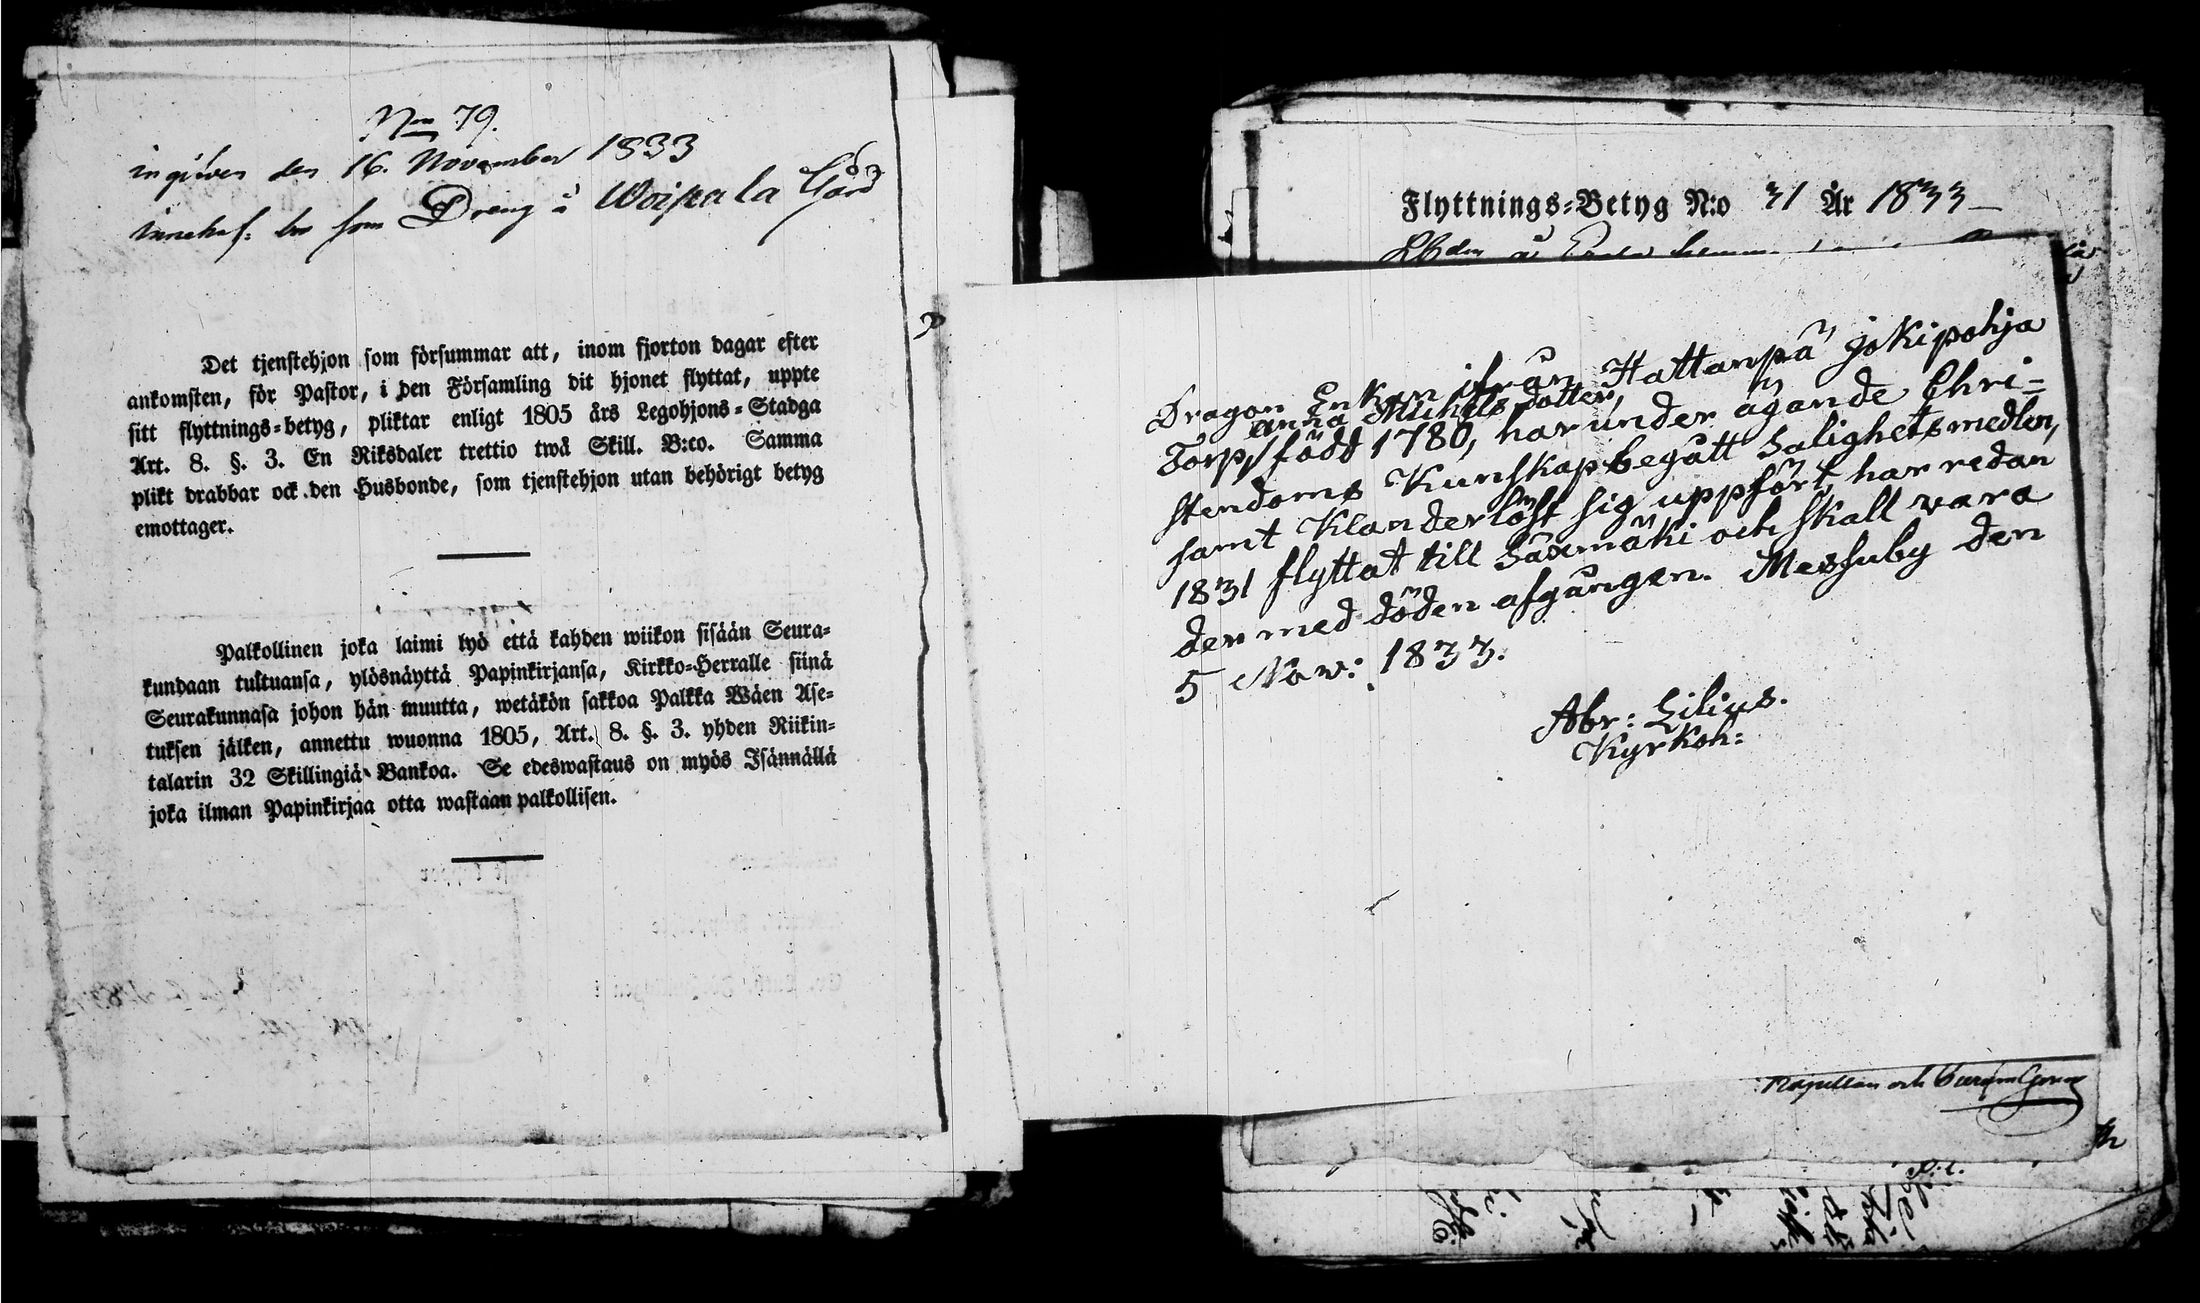 Nro 79.
ingifven den 16. November 1833
innehaf: bor som Dreng å Woipala Gård
Det tjenstehjon som försummar att, inom fjorton dagar efter
ankomsten, för Pastor, i den Församling dit hjonet flyttat, uppte
sitt flyttnings-betyg, pliktar enligt 1805 års Legohjons-Stadga
Art. 8. §. 3. En Riksdaler trettio twå Skill. B:co. Samma
plikt drabbar ock den Husbonde, som tjenstehjon utan behörigt betyg
emottager.
Palkollinen joka laimi lyö että kahden wiikon sisään Seura-
kundaan tultuansa, ylösnäyttä Papinkirjansa, Kirkko-Herralle siinä
Seurakunnasa johon hän muutta, wetäkön sakkoa Palkka Wäen Ase-
tuksen jälken, annettu wuonna 1805, Art. 8. §. 3. yhden Riikin-
talarin 32 Skillingiä Bankoa. Se edeswastaus on myös Isännällä
joka ilman Papinkirjaa otta wastaan palkollisen.
Flyttnings-Betyg N:o 31 År 1833
Dragon Enkan ifrån Hattanpä jokipohja
Anna Michelsdotter,
Torp, född 1780, har under ägande Chri-
stendoms Kunskap begått Salighetsmedlen,
samt Klanderlöst sig uppfört, har redan
1831 flyttat till Sääxmäki och skall vara
der med döden afgången. Messuby den
5 Nov: 1833.
Abr: Lilius.
Kyrkoh: